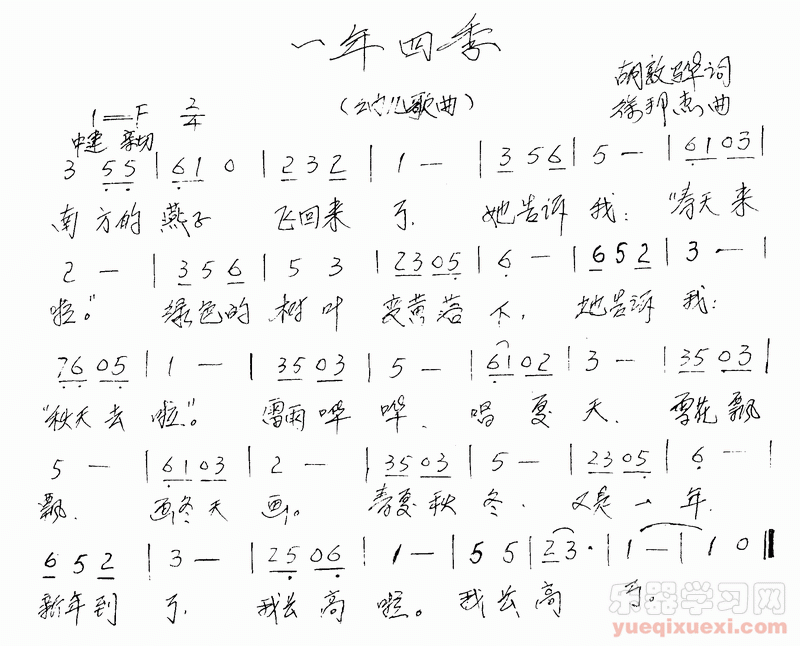 一年四季
(幼儿歌曲)
胡敦骅词
徐邦杰曲
1=F 2/4
中速 亲切
3 5 5 | 6 1 0 | 2 3 2 | 1 — | 3 5 6 | 5 — | 6 1 0 3 |
南方的燕子 飞回来了. 她告诉我:"春天来
2 — | 3 5 6 | 5 3 | 2 3 0 5 | 6 — | 6 5 2 | 3 — |
啦"。 绿色的树叶 变黄落下. 她告诉我:
7 6 0 5 | 1 — | 3 5 0 3 | 5 — | 6 1 0 2 | 3 — | 3 5 0 3 |
"秋天去啦"。 雷雨哗哗. 唱夏天. 雪花飘
5 — | 6 1 0 3 | 2 — | 3 5 0 3 | 5 — | 2 3 0 5 | 6 — |
飘. 画冬天画。 春夏秋冬. 又是一年.
6 5 2 | 3 — | 2 5 0 6 | 1 — | 5 5 | 2 3 · | 1 — | 1 0 ‖
新年到了. 我长高啦。我长高了。
乐器学习网
yueqixuexi.com